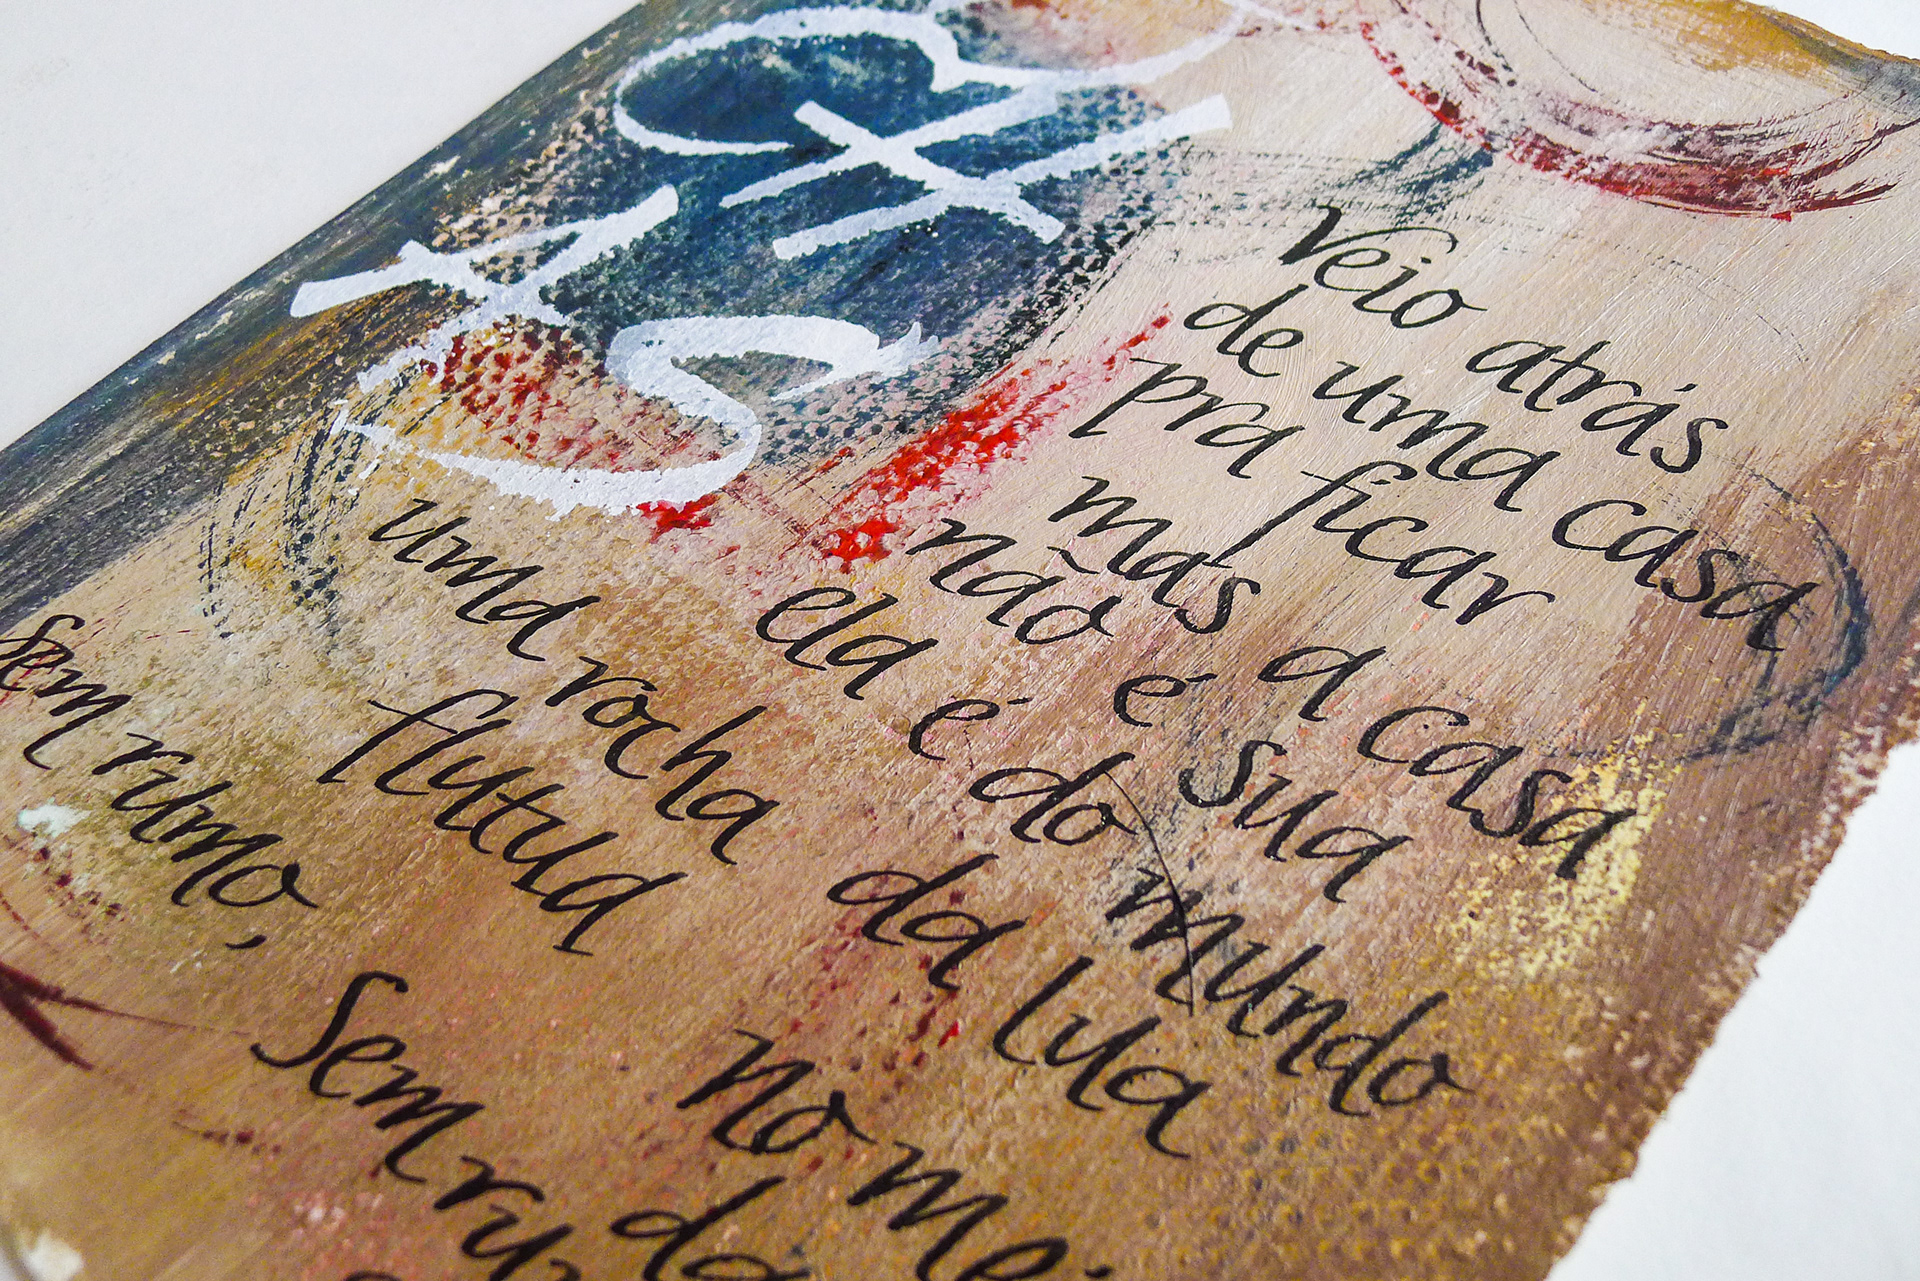 Veio atrás
de uma casa
pra ficar
mas a casa
não é sua
ela é do mundo
uma rocha da lua
flutua no
da
sem rumo, sem